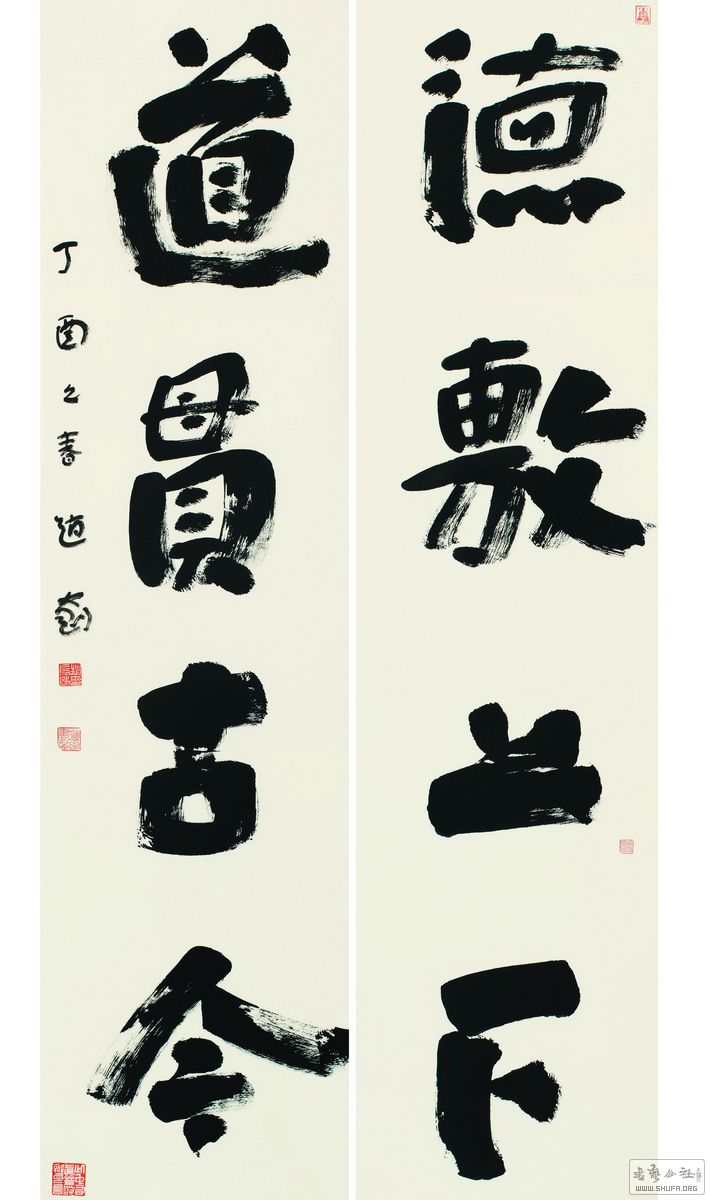 德敷上下
道貫古今
丁酉之春道
書藝公社
WWW.SHUFA.ORG